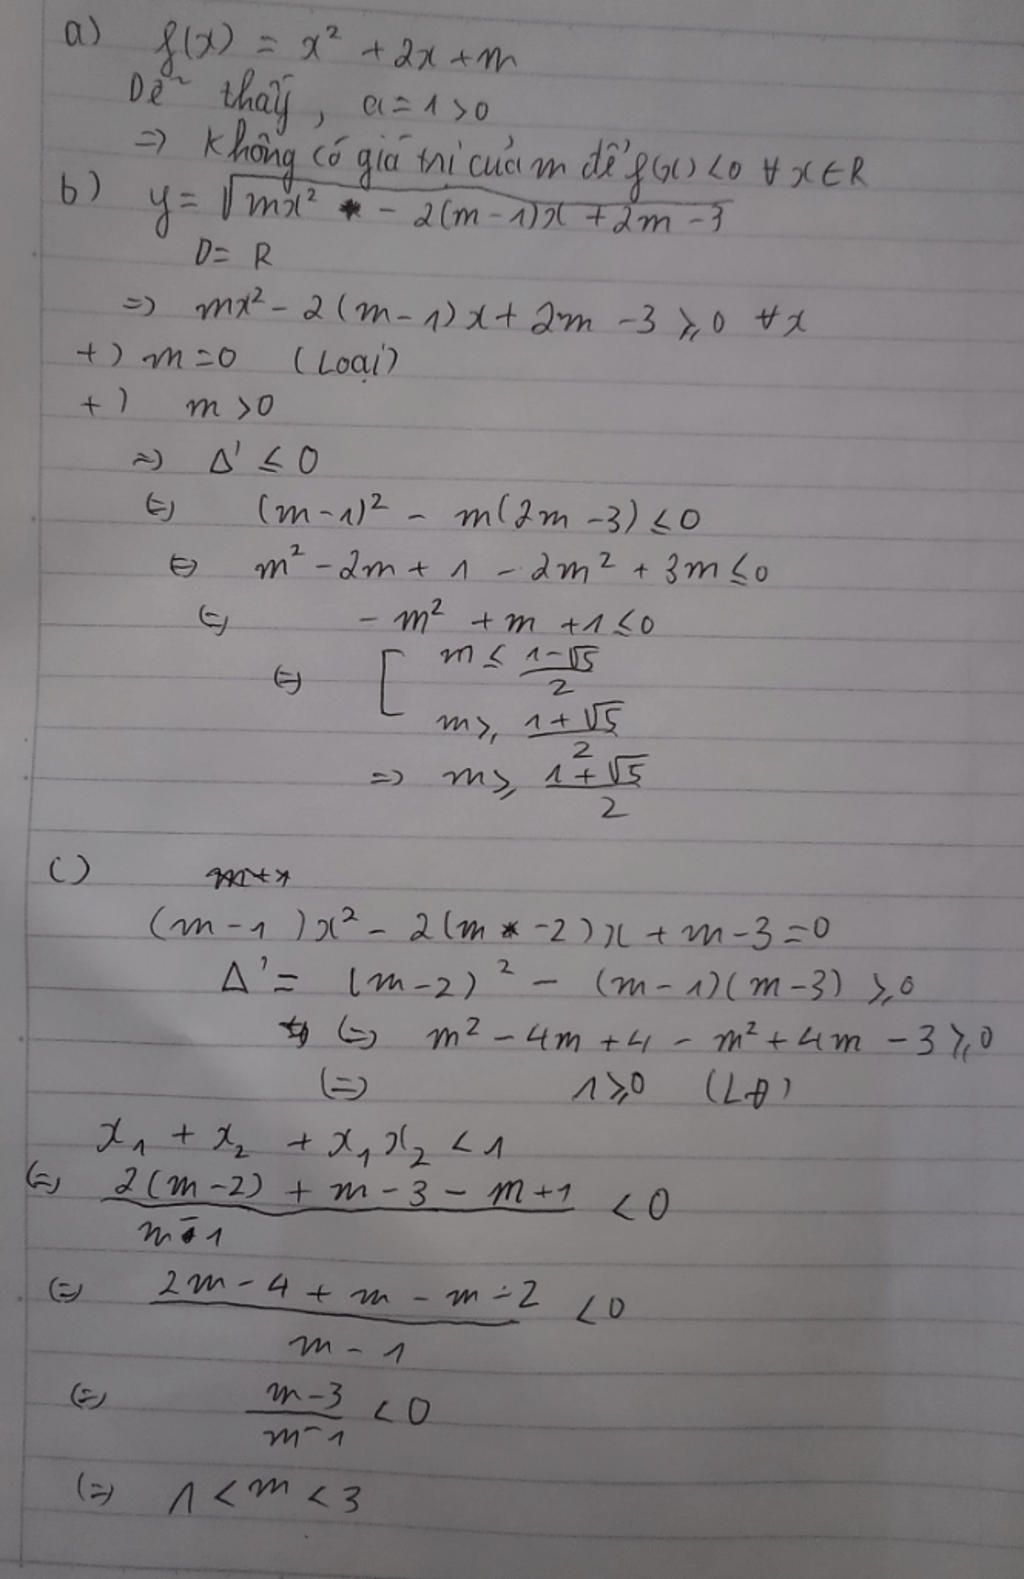 a) f(x) = x² + 2x + m
Dễ thấy, a = 1 > 0
=> Không có giá trị của m để f(x) < 0 ∀ x ∈ R
b) y = √(mx² - 2(m-1)x + 2m - 3)
D = R
=> mx² - 2(m-1)x + 2m - 3 ≥ 0 ∀x
+) m = 0 (Loại)
+) m > 0
=> Δ' ≤ 0
<=> (m-1)² - m(2m-3) ≤ 0
<=> m² - 2m + 1 - 2m² + 3m ≤ 0
<=> - m² + m + 1 ≤ 0
<=> [ m ≤ (1-√5)/2
m ≥ (1+√5)/2
=> m ≥ (1+√5)/2
c)
(m-1)x² - 2(m-2)x + m - 3 = 0
Δ' = (m-2)² - (m-1)(m-3) ≥ 0
<=> m² - 4m + 4 - m² + 4m - 3 ≥ 0
<=> 1 ≥ 0 (LĐ)
x₁ + x₂ + x₁x₂ < 1
<=> (2(m-2) + m - 3 - m + 1)/(m-1) < 0
<=> (2m - 4 + m - m - 2)/(m-1) < 0
<=> (m-3)/(m-1) < 0
<=> 1 < m < 3